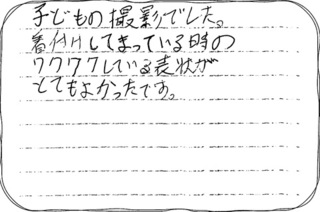 子どもの撮影でした。
着付けしてまっている時の
ワクワクしている表状が
とてもよかったです。